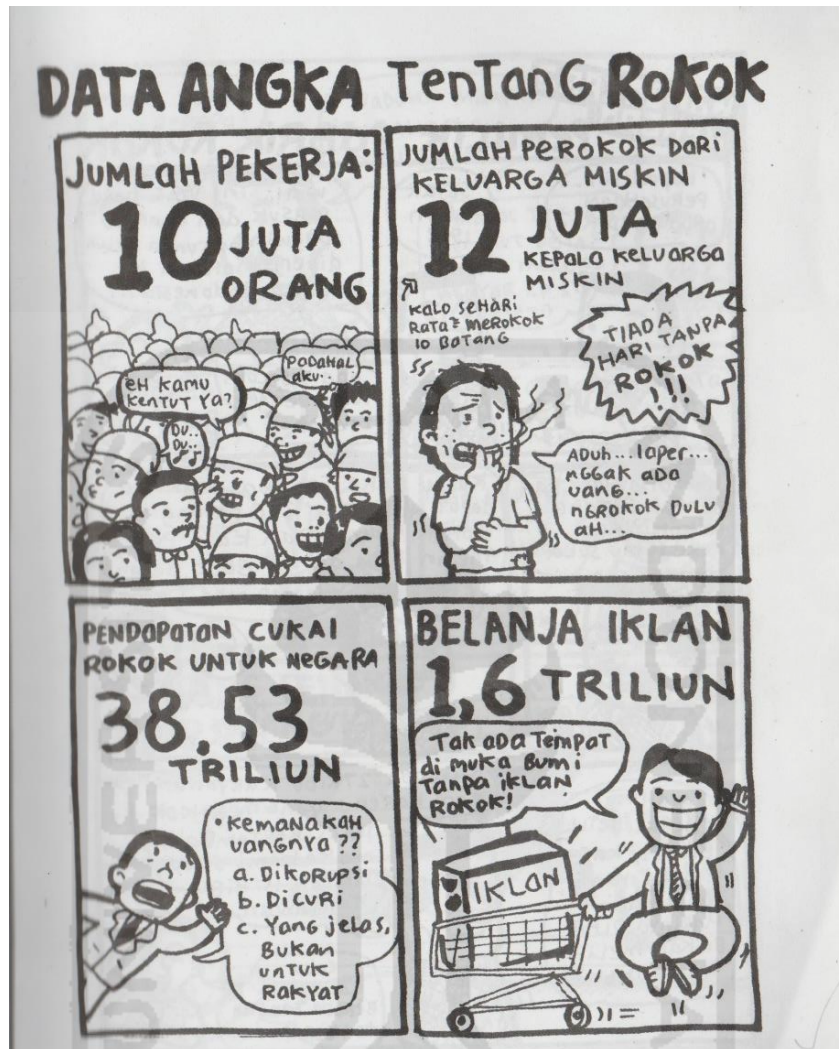 DATA ANGKA TenTanG ROKOK
JUMLaH PEKERJA:
10 JUTA
ORANG
eH KAMU
KENTUT Ya?
PADAHAL
aku..
DU..
DU..
JUMLaH PeROKOK DaRi
KELUARGA MISKIN
12 JUTA
KEPALa KeLUaRGa
MISKIN
KaLO SeHARi
RaTa² MeROKOK
10 BaTanG
TIADA
HARI TANPA
ROKOK
!!!
ADUh...laper...
nGGak aDa
uang...
nGROKOK DuLu
aH...
PENDaPaTaN CUKAI
ROKOK UNTUK NeGARA
38.53
TRILIUN
• KeManaKaH
uangnYa ??
a. DiKORuPsi
b. DiCURi
c. Yang jeLas,
BuKan
unTuK
RaKYaT
BELANJA IKLAN
1,6 TRILIUN
Tak aDa TeMPaT
di Muka BuMi
TanPa iKLan
ROKOK!
IKLAN